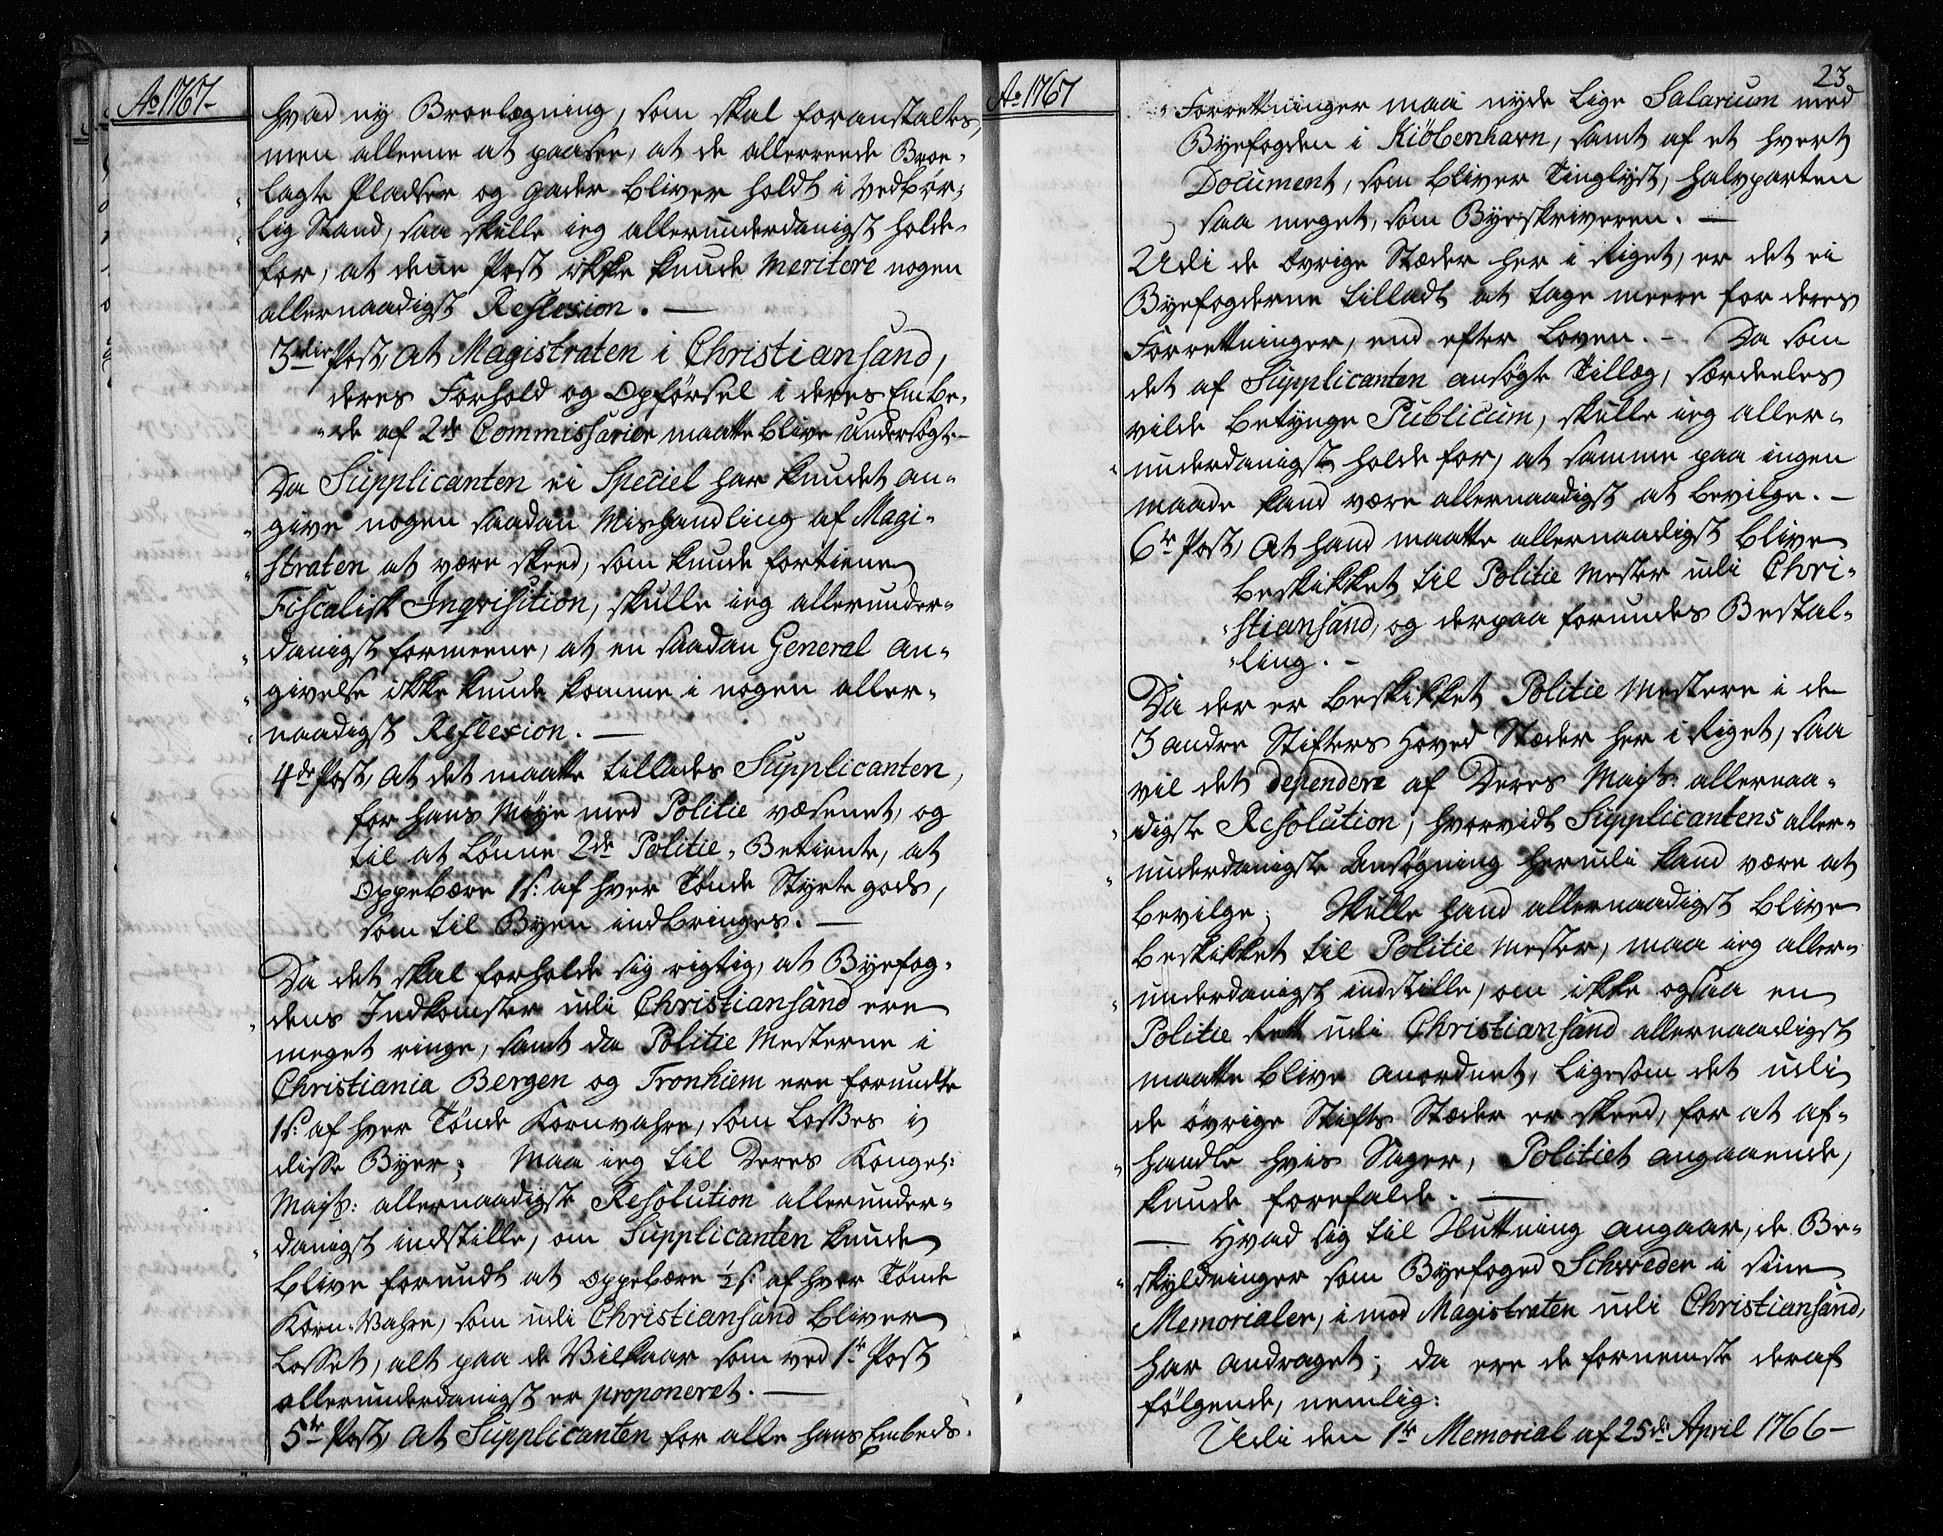 Ao 1767-
hvad ny Broelægning, som skal foranstaltes,
men alleene at paasee, at de allerreede Broe-
lagte Pladser og Gader bliver holdt i vedbør-
lig Stand, saa skulle ieg allerunderdanigst holde
for, at denne Post ikke kunde meritere nogen
allernaadigst Reflexion. —
3die Post, At Magistraten i Christiansand,
deres Forhold og Opførsel i deres Embe-
de af 2de Commissarier maatte blive undersøgt.-
Da Supplicanten ei Speciel har kundet an-
give nogen saadan Mishandling af Magi-
straten at være skeed, som kunde fortiene
Fiscalisk Inqvisition, skulle ieg allerunder-
danigst formeene, at en saadan General an-
givelse ikke kunde komme i nogen aller-
naadigst Reflexion. —
4de Post, At det maatte tillades Supplicanten,
for hans Møye med Politie væsenet, og
til at Lønne 2de Politie-Betiente, at
oppebære 1 s: af hver Tønde Styrte gods,
som til Byen indbringes. —
Da det skal forholde sig rigtig, at Byefog-
dens Indkomster udi Christiansand ere
meget ringe, samt da Politie Mesterne i
Christiania Bergen og Tronhiem ere forundte
1 s: af hver Tønde Kornvahre, som Losses i
disse Byer; Maa ieg til Deres Kongel:
Majts: allernaadigste Resolution allerunder-
danigst indstille, om Supplicanten kunde
blive forundt at oppebære ½ s: af hver Tønde
Korn-Vahre, som udi Christiansand bliver
Losset, alt paa de Vilkaar som ved 1te Post
allerunderdanigst er proponeret. —
5te Post, At Supplicanten for alle hans Embeds-
Ao 1767
23
Forrettninger maa nyde lige Salarium med
Byefogden i Kiöbenhavn, samt af et hvert
Document, som bliver Tinglyst, halvparten
saa meget, som Byeskriveren. —
Udi de øvrige Stæder her i Riget, er det ei
Byefogderne tilladt at tage meere for deres
Forrettninger, end efter Loven. - Da som
det af Supplicanten ansøgte Tillæg, særdeeles
vilde betynge Publicum, skulle ieg aller-
underdanigst holde for, at samme paa ingen
maade kand være allernaadigst at bevilge. -
6te Post, At hand maatte allernaadigst blive
beskikket til Politie Mester udi Chri-
stiansand, og derpaa forundes Bestal-
ling. -
Da der er beskikket Politie Mestere i de
3 andre Stifters Hoved Stæder her i Riget, saa
vil det dependere af Deres Majts: allernaa-
digste Resolution, hvorvidt Supplicantens aller-
underdanigste Ansøgning herudi kand være at
bevilge; Skulle hand allernaadigst blive
beskikket til Politie Mester, maa ieg aller-
underdanigst indstille, om ikke ogsaa en
Politie Rett udi Christiansand allernaadigst
maatte blive anordnet, ligesom det udi
de øvrige Stifts Stæder er skeed, for at af-
handle hvis Sager, Politiet angaaende,
kunde forefalde. —
— Hvad sig til Slutning angaar, de Be-
skyldninger som Byefoged Schweder i sine
Memorialer, imod Magistraten udi Christiansand,
har andraget; da ere de fornemste deraf
følgende, nemlig:
Udi den 1te Memorial af 25de April 1766-